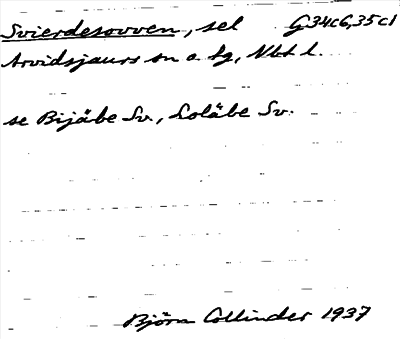 Svierdesovven, sel G34c6,35c1
Arvidsjaurs sn o. lg, Nbt l.
se Bijábe Sv., Loläbe Sv.
Björn Collinder 1937